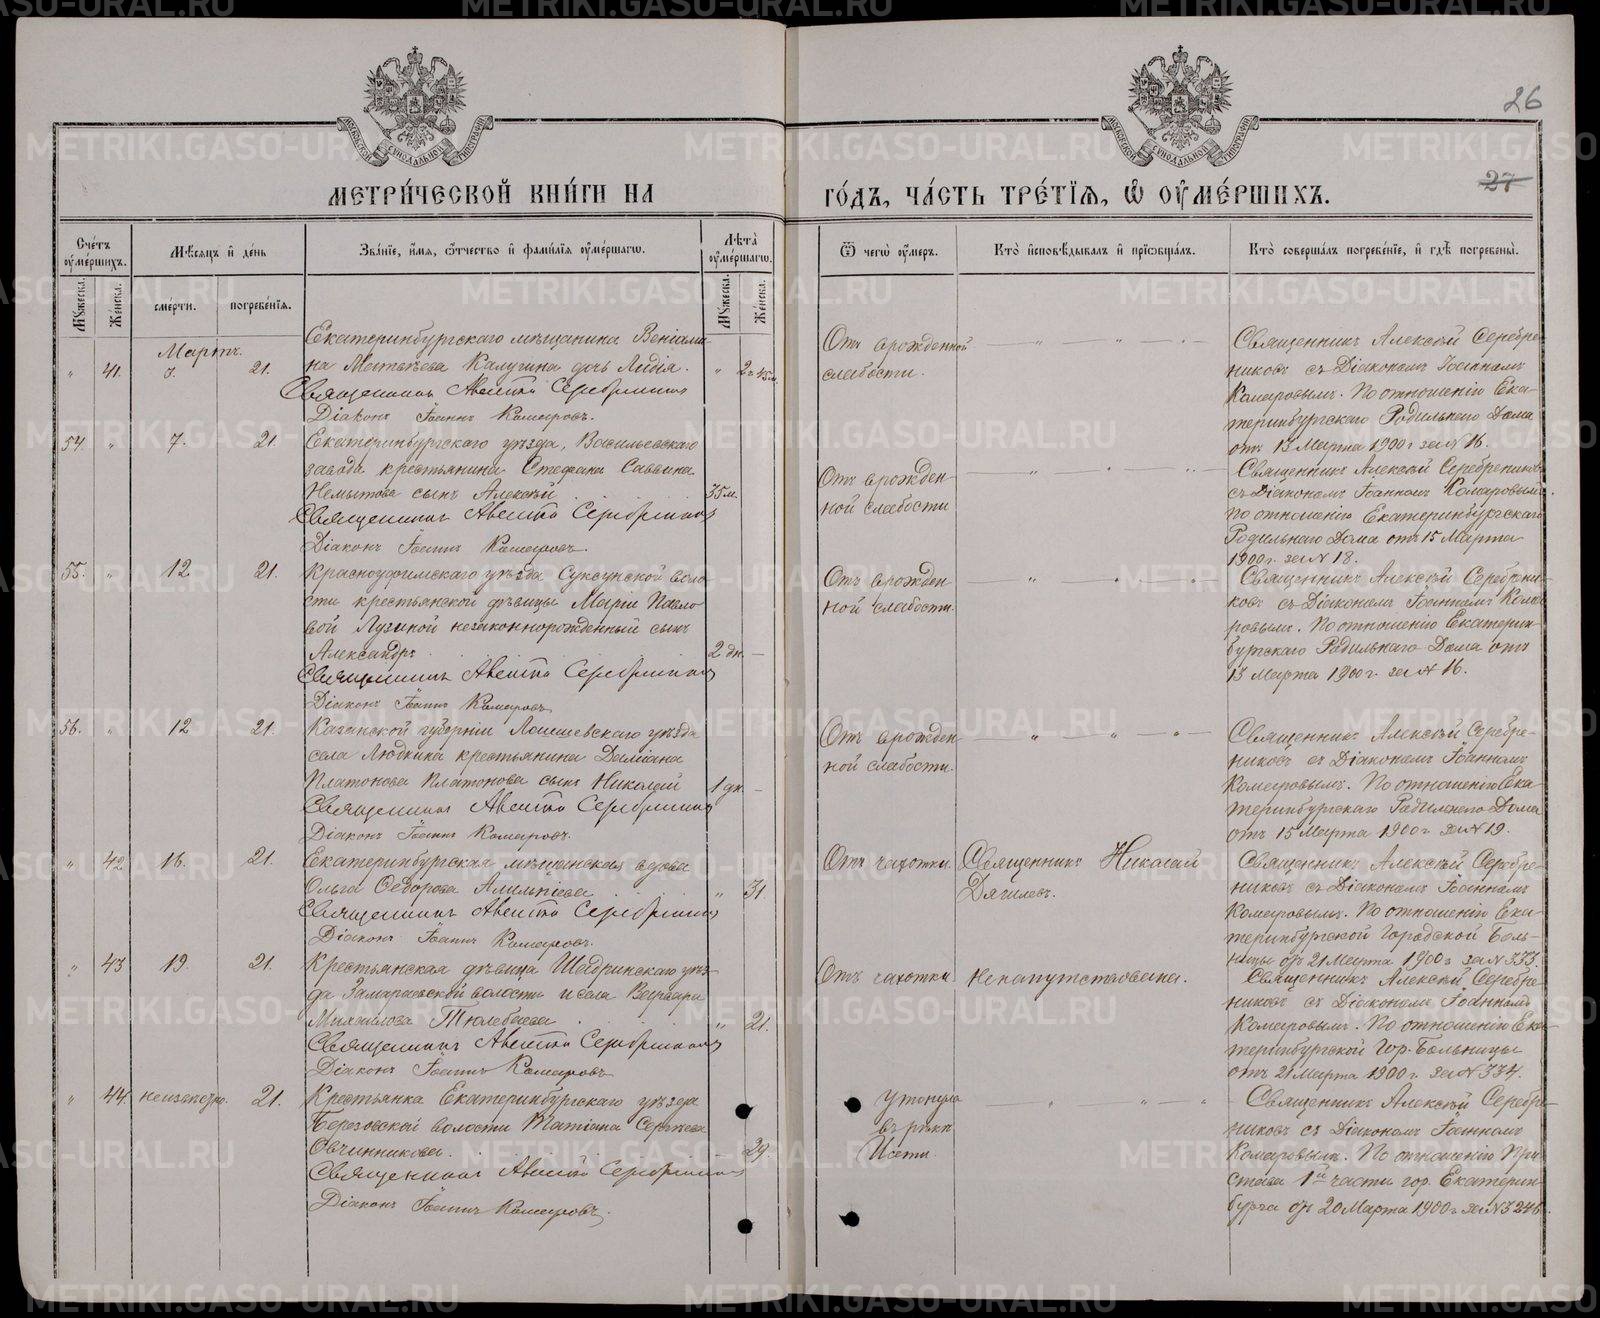 26
27
МЕТРИ́ЧЕСКОЙ КНИ́ГИ НА
ГО́ДЪ, ЧА́СТЬ ТРЕ́ТІЯ, Ѡ҆ ОУ҆МЕ́РШИХЪ.
Сче́тъ оу҆ме́ршихъ.
Мѣ́сяцъ и҆ де́нь
Зва́ніе, и҆́мя, ѻ҆́тчество и҆ фами́лія оу҆ме́ршагѡ.
Лѣ́та оу҆ме́ршагѡ.
Ѿ чегѡ̀ оу҆́меръ.
Кто̀ и҆сповѣ́дывалъ и҆ прїѡбща́лъ.
Кто̀ соверша́лъ погребе́ніе, и҆ гдѣ̀ погребены̀.
Му́жеска.
Же́нска.
сме́рти.
погребе́нія.
Му́жеска.
Же́нска.
Мартъ.
" 41. 7. 21.
Екатеринбургскаго мѣщанина Веніами-
на Матвѣева Калугина дочь Лидія. "
Священникъ Алексѣй Серебренниковъ
Діаконъ Іоаннъ Комаровъ.
Отъ врожденной
слабости.
Священникъ Алексѣй Серебре-
никовъ съ Діакономъ Іоанномъ
Комаровымъ. По отношенію Ека-
теринбургскаго Родильнаго Дома
отъ 13 Марта 1900 г за № 16.
54. " 7. 21.
Екатеринбургскаго уѣзда, Васильевскаго
завода крестьянина Стефана Саввина
Немытова сынъ Алексѣй 35 м.
Священникъ Алексѣй Серебренниковъ
Діаконъ Іоаннъ Комаровъ.
Отъ врожден
ной слабости
Священникъ Алексѣй Серебрениковъ
съ Діакономъ Іоанномъ Комаровымъ.
По отношенію Екатеринбургскаго
Родильнаго Дома отъ 15 Марта
1900 г. за № 18.
55. " 12 21.
Красноуфимскаго уѣзда Суксунской воло
сти крестьянской дѣвицы Маріи Павло
вой Лузиной незаконнорожденный сынъ
Александръ. 2 дн. —
Священникъ Алексѣй Серебренниковъ
Діаконъ Іоаннъ Комаровъ
Отъ врожден
ной слабости.
Священникъ Алексѣй Серебрени-
ковъ съ Діакономъ Іоанномъ Кома-
ровымъ. По отношенію Екатерин-
бургскаго Родильнаго Дома отъ
13 Марта 1900 г. за № 16.
56. " 12 21.
Казанской губерніи Лаишевскаго уѣзда
села крестьянина Даміана
Платонова Платонова сынъ Николай 1 дн. —
Священникъ Алексѣй Серебренниковъ
Діаконъ Іоаннъ Комаровъ.
Отъ врожден
ной слабости.
Священникъ Алексѣй Серебре-
никовъ съ Діакономъ Іоанномъ
Комаровымъ. По отношенію Ека
теринбургскаго Родильнаго Дома
отъ 15 Марта 1900 г за № 19.
" 42 16. 21.
Екатеринбургская мѣщанская вдова
Ольга Ѳедорова " 31
Священникъ Алексѣй Серебренниковъ
Діаконъ Іоаннъ Комаровъ.
Отъ чахотки.
Священникъ Николай
Дягилевъ.
Священникъ Алексѣй Серебре-
никовъ съ Діакономъ Іоанномъ
Комаровымъ. По отношенію Ека-
теринбургской Городской Боль-
ницы отъ 21 Марта 1900 г за № 333.
" 43 19. 21.
Крестьянская дѣвица Шадринскаго уѣз-
да Замараевской волости и села Варвара
Михайлова Тюлебаева " 21.
Священникъ Алексѣй Серебренниковъ
Діаконъ Іоаннъ Комаровъ
Отъ чахотки
Ненапутствована.
Священникъ Алексѣй Серебре-
никовъ съ Діакономъ Іоанномъ
Комаровымъ. По отношенію Ека-
теринбургской Гор. Больницы
отъ 21 Марта 1900 г. за № 334.
" 44 21.
Крестьянка Екатеринбургскаго уѣзда
Березовской волости Татіана Сергѣева
Овчинникова. — 29
Священникъ Алексѣй Серебренниковъ
Діаконъ Іоаннъ Комаровъ.
Утонула
въ рѣкѣ
Исети.
Священникъ Алексѣй Серебре-
никовъ съ Діакономъ Іоанномъ
Комаровымъ. По отношенію При-
става 1й части гор. Екатерин-
бурга отъ 20 Марта 1900 г за № 3246.
METRIKI.GASO-URAL.RU